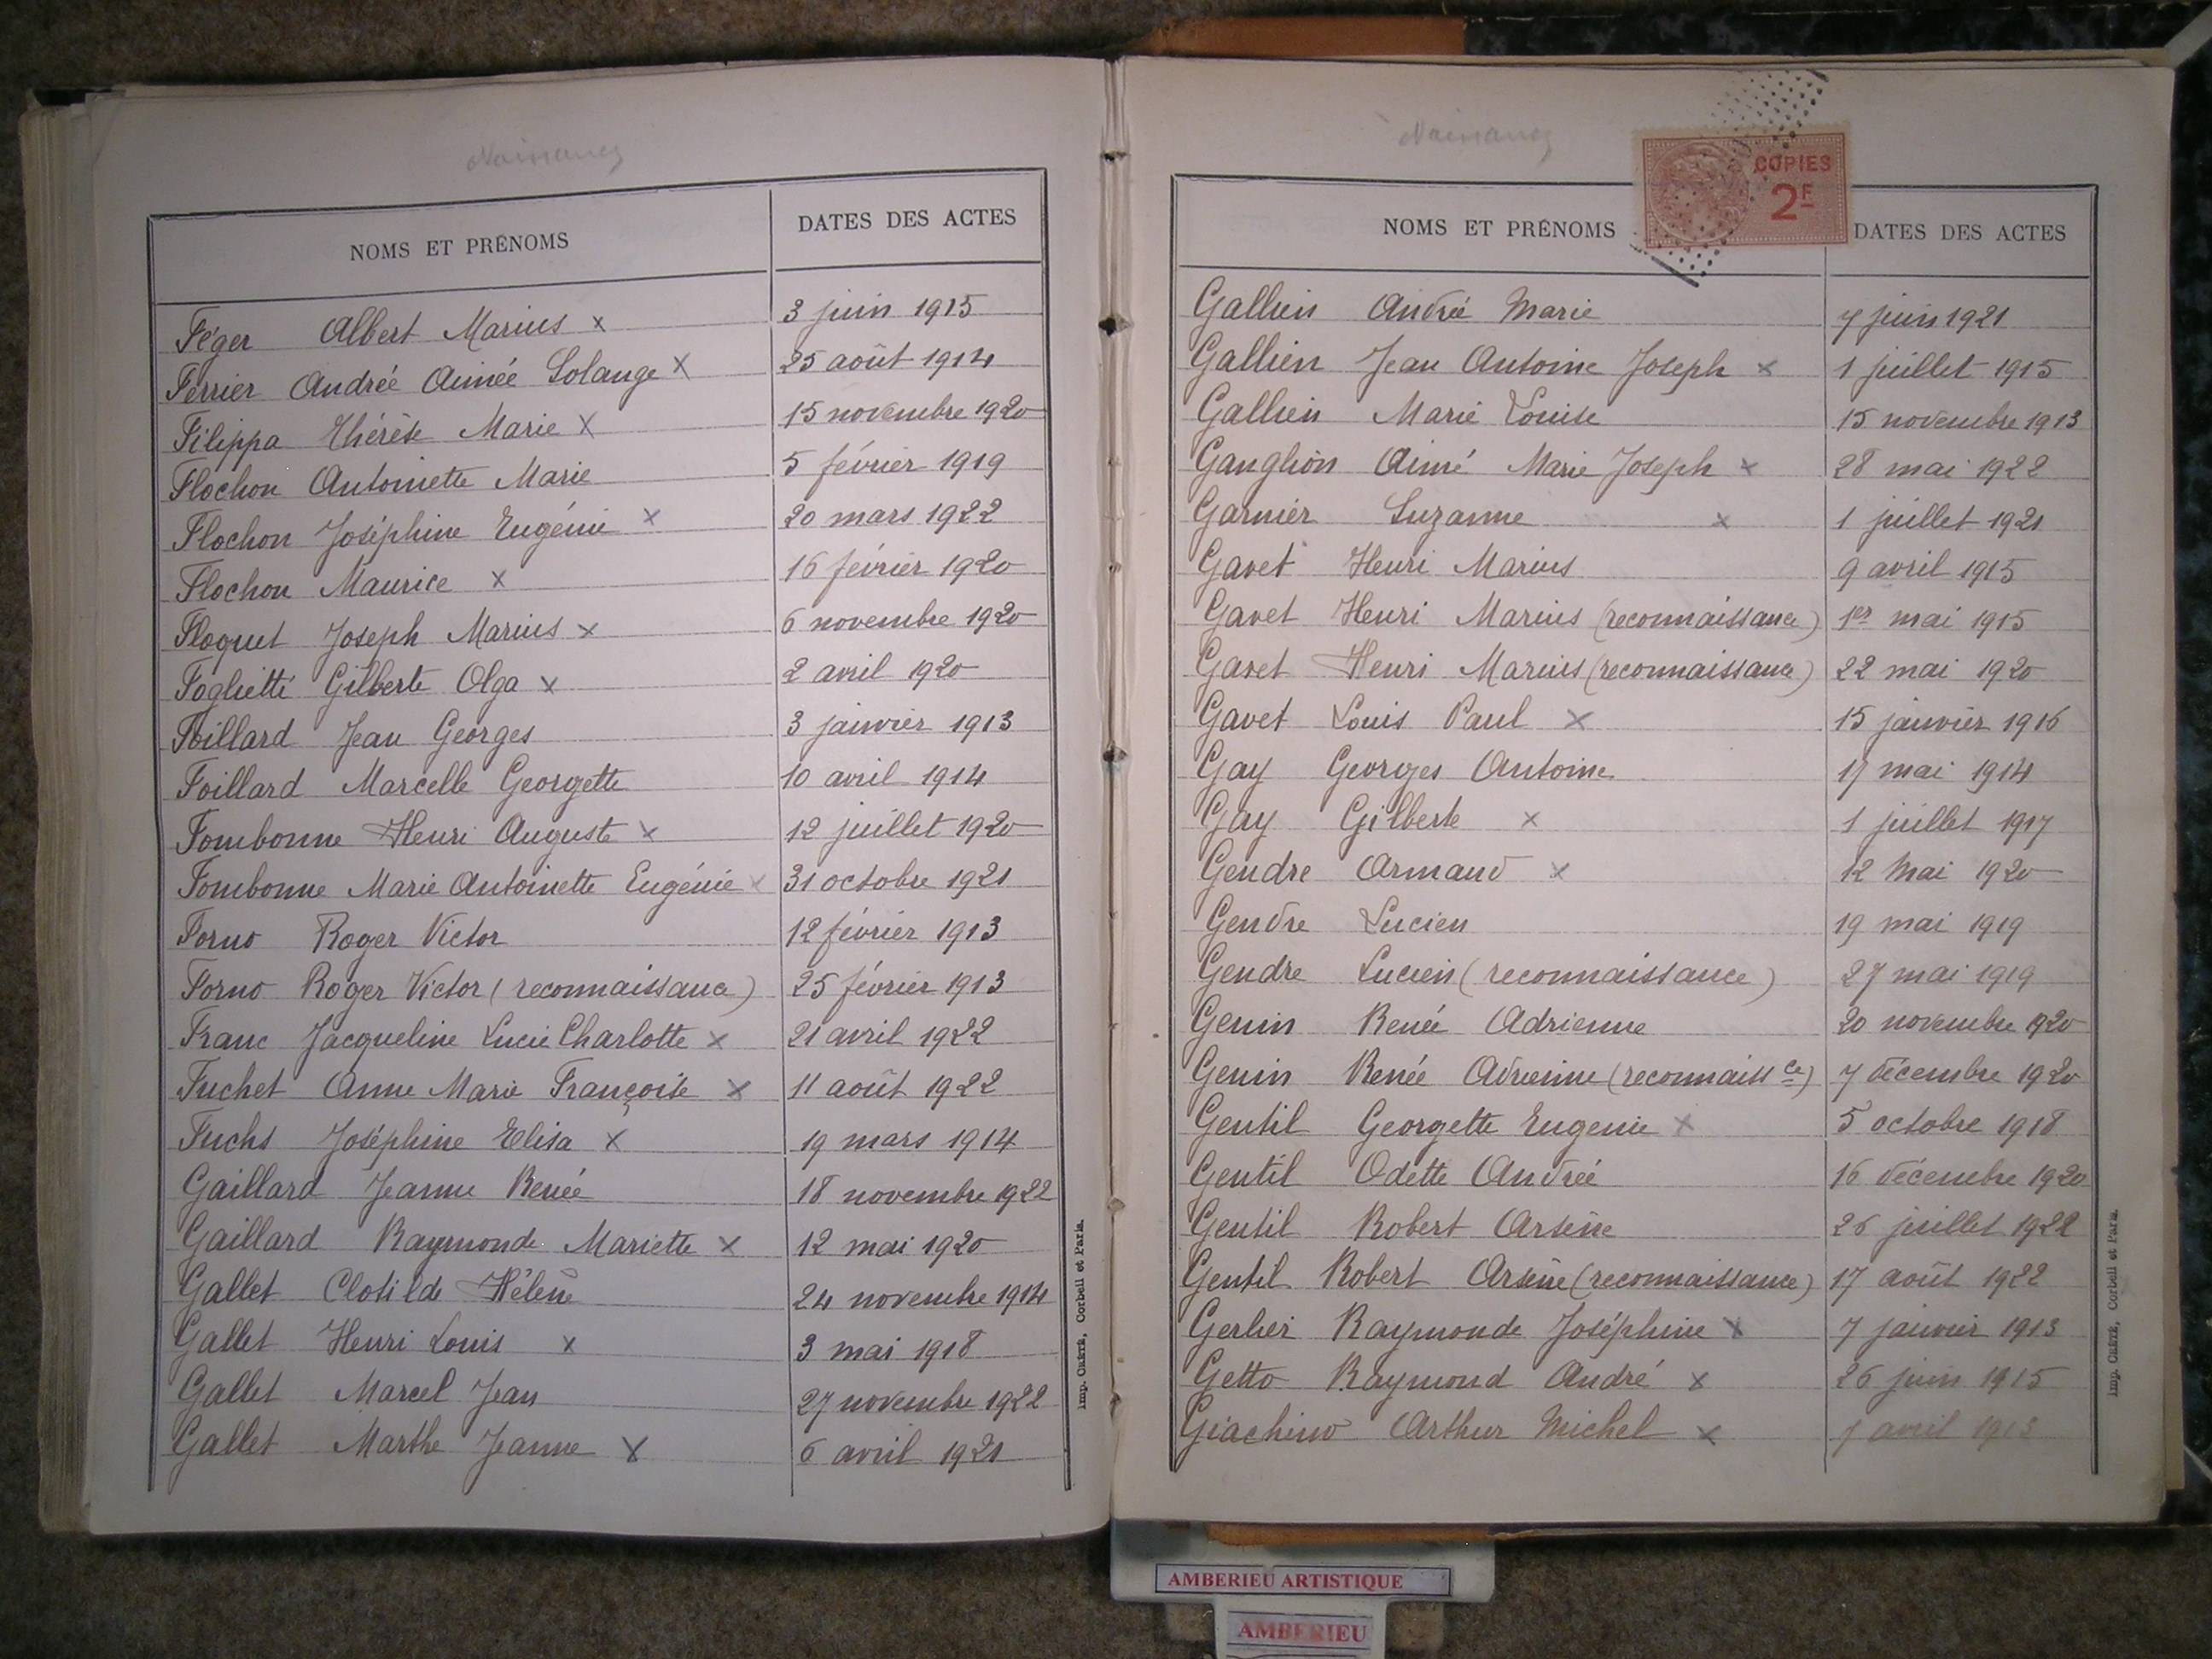 Naissances
NOMS ET PRÉNOMS DATES DES ACTES
Féger Albert Marius x 3 juin 1915
Ferrier Andrée Aimée Solange x 25 août 1914
Filippa Thérèse Marie x 15 novembre 1920
Flochon Antoinette Marie 5 février 1919
Flochon Joséphine Eugénie x 20 mars 1922
Flochon Maurice x 16 février 1920
Floquet Joseph Marius x 6 novembre 1920
Foglietti Gilberte Olga x 2 avril 1920
Foillard Jean Georges 3 janvier 1913
Foillard Marcelle Georgette 10 avril 1914
Fombonne Henri Auguste x 12 juillet 1920
Fombonne Marie Antoinette Eugénie x 31 octobre 1921
Forno Roger Victor 12 février 1913
Forno Roger Victor (reconnaissance) 25 février 1913
Franc Jacqueline Lucie Charlotte x 21 avril 1922
Fuchet Anne Marie Françoise x 11 août 1922
Fuchs Joséphine Elisa x 19 mars 1914
Gaillard Jeanne Renée 18 novembre 1922
Gaillard Raymonde Mariette x 12 mai 1920
Gallet Clotilde Hélène 24 novembre 1914
Gallet Henri Louis x 3 mai 1918
Gallet Marcel Jean 27 novembre 1922
Gallet Marthe Jeanne x 6 avril 1921
Imp. CRÉTÉ, Corbeil et Paris.
Naissances
COPIES
2F
NOMS ET PRÉNOMS DATES DES ACTES
Gallien Andrée Marie 7 juin 1921
Gallien Jean Antoine Joseph x 1 juillet 1915
Gallien Marie Louise 15 novembre 1913
Ganglion Aimé Marie Joseph x 28 mai 1922
Garnier Suzanne x 1 juillet 1921
Gavet Henri Marius 9 avril 1915
Gavet Henri Marius (reconnaissance) 1er mai 1915
Gavet Henri Marius (reconnaissance) 22 mai 1920
Gavet Louis Paul x 15 janvier 1916
Gay Georges Antoine 17 mai 1914
Gay Gilberte x 1 juillet 1917
Gendre Armand x 12 Mai 1920
Gendre Lucien 19 mai 1919
Gendre Lucien (reconnaissance) 27 mai 1919
Genin Renée Adrienne 20 novembre 1920
Genin Renée Adrienne (reconnaissce) 7 décembre 1920
Gentil Georgette Eugenie x 5 octobre 1918
Gentil Odette Andrée 16 décembre 1920
Gentil Robert Arsène 26 juillet 1922
Gentil Robert Arsène (reconnaissance) 17 août 1922
Gerlier Raymonde Joséphine x 7 janvier 1913
Getto Raymond André x 26 juin 1915
Giachino Arthur Michel x 7 avril 1913
Imp. CRÉTÉ, Corbeil et Paris.
AMBERIEU ARTISTIQUE
AMBERIEU